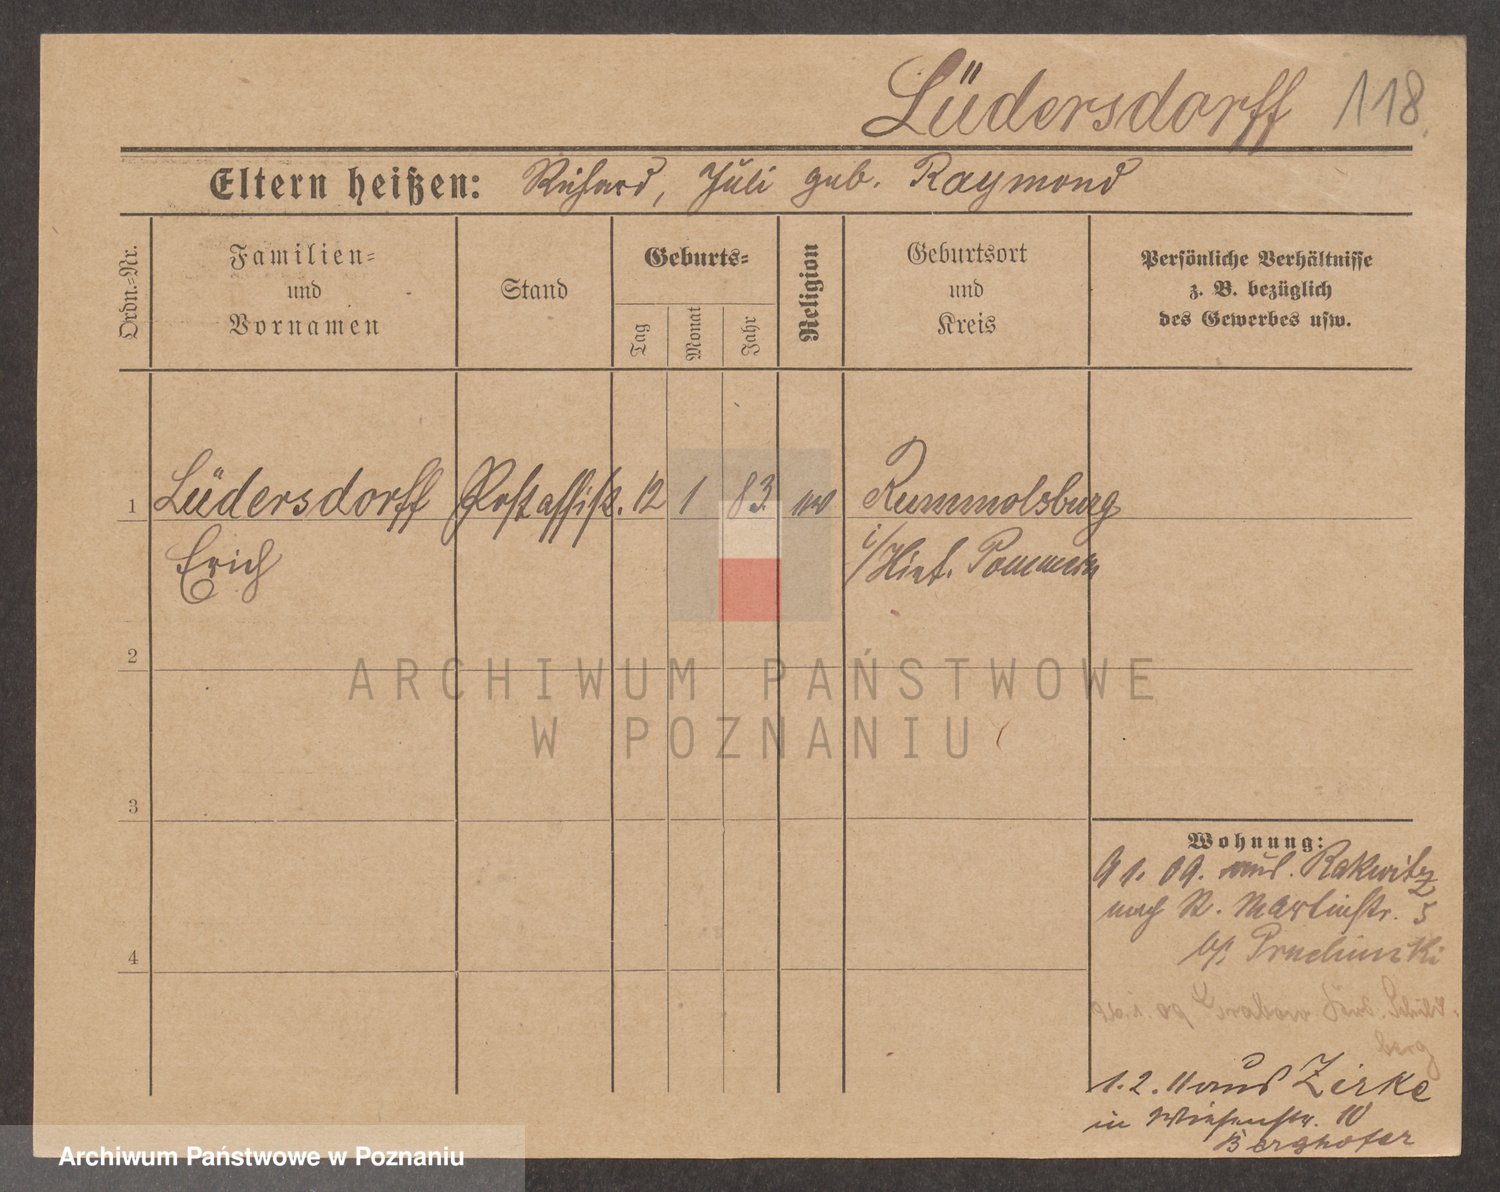 Lüdersdorff 118
Eltern heißen: Richard, Juli geb. Raymond
Ordn.=Nr.
Familien=
und
Vornamen
Stand
Geburts=
Tag
Monat
Jahr
Religion
Geburtsort
und
Kreis
Persönliche Verhältnisse
z. B. bezüglich
des Gewerbes usw.
1 Lüdersdorff Postassist. 12 1 83 ev Rummelsburg
Erich i/Hint. Pommern
2
3
4
Wohnung:
9 1. 09. aus. Rakwitz
nach St. Martinstr.
b/.
09 Grabow Schild-
berg
1. 2. 11 aus Zirke
in Wiesenstr. 10
Berghofer
ARCHIWUM PAŃSTWOWE
W POZNANIU
Archiwum Państwowe w Poznaniu